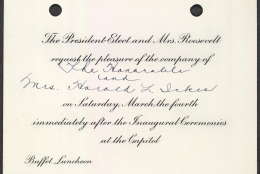 The President-Elect and Mrs. Roosevelt
request the pleasure of the company of
The Honorable
and
Mrs. Harold L. Ickes
on Saturday, March the fourth
immediately after the Inaugural Ceremonies
at the Capitol
Buffet Luncheon